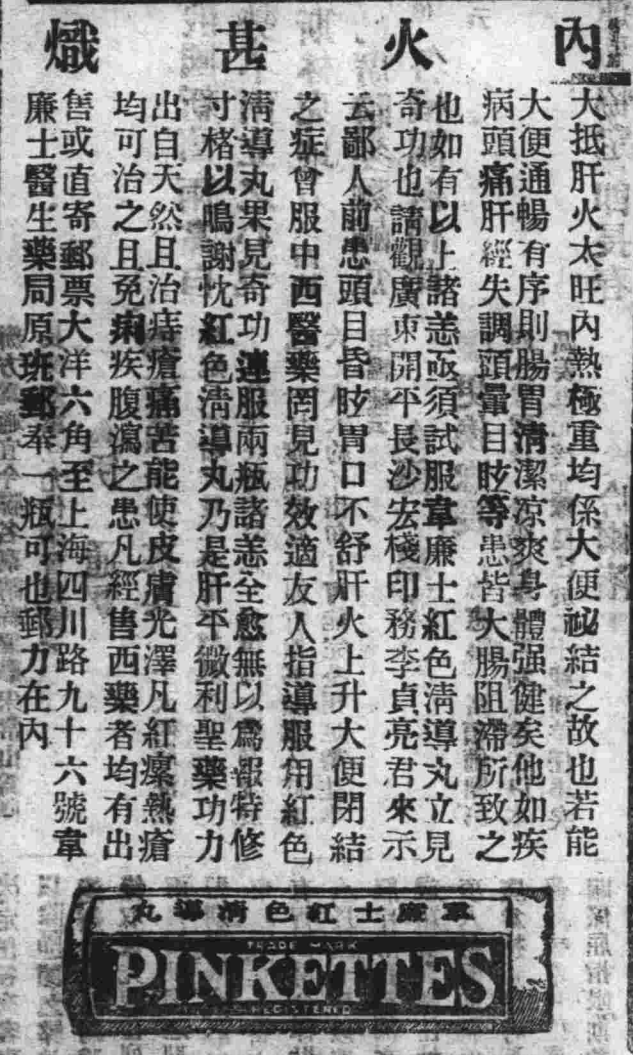 內火甚熾
大抵肝火太旺內熱極重均係大便祕結之故也若能
大便通暢有序則腸胃清潔涼爽身體强健矣他如疾
病頭痛肝經失調頭暈目眩等患皆大腸阻滯所致之
也如有以上諸恙亟須試服韋廉士紅色清導丸立見
奇功也請觀廣東開平長沙宏棧印務李貞亮君來示
云鄙人前患頭目昏眩胃口不舒肝火上升大便閉結
之症曾服中西醫藥罔見功效適友人指導服用紅色
清導丸果見奇功連服兩瓶諸恙全愈無以爲報特修
寸格以鳴謝忱紅色清導丸乃是肝平微利聖藥功力
出自天然且治痔瘡痛苦能使皮膚光澤凡紅瘰熱瘡
均可治之且免痢疾腹瀉之患凡經售西藥者均有出
售或直寄郵票大洋六角至上海四川路九十六號韋
廉士醫生藥局原班郵奉一瓶可也郵力在內
丸導清色紅士廉韋
TRADE MARK
PINKETTES
REGISTERED